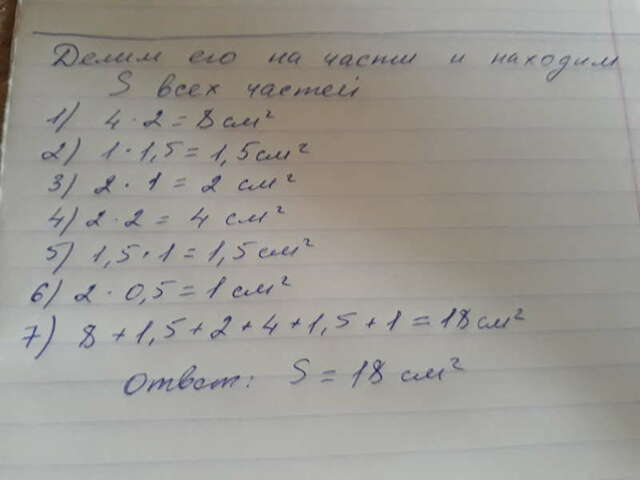 Делим его на части и находим
S всех частей
1) 4 · 2 = 8 см²
2) 1 · 1,5 = 1,5 см²
3) 2 · 1 = 2 см²
4) 2 · 2 = 4 см²
5) 1,5 · 1 = 1,5 см²
6) 2 · 0,5 = 1 см²
7) 8 + 1,5 + 2 + 4 + 1,5 + 1 = 18 см²
Ответ: S = 18 см²